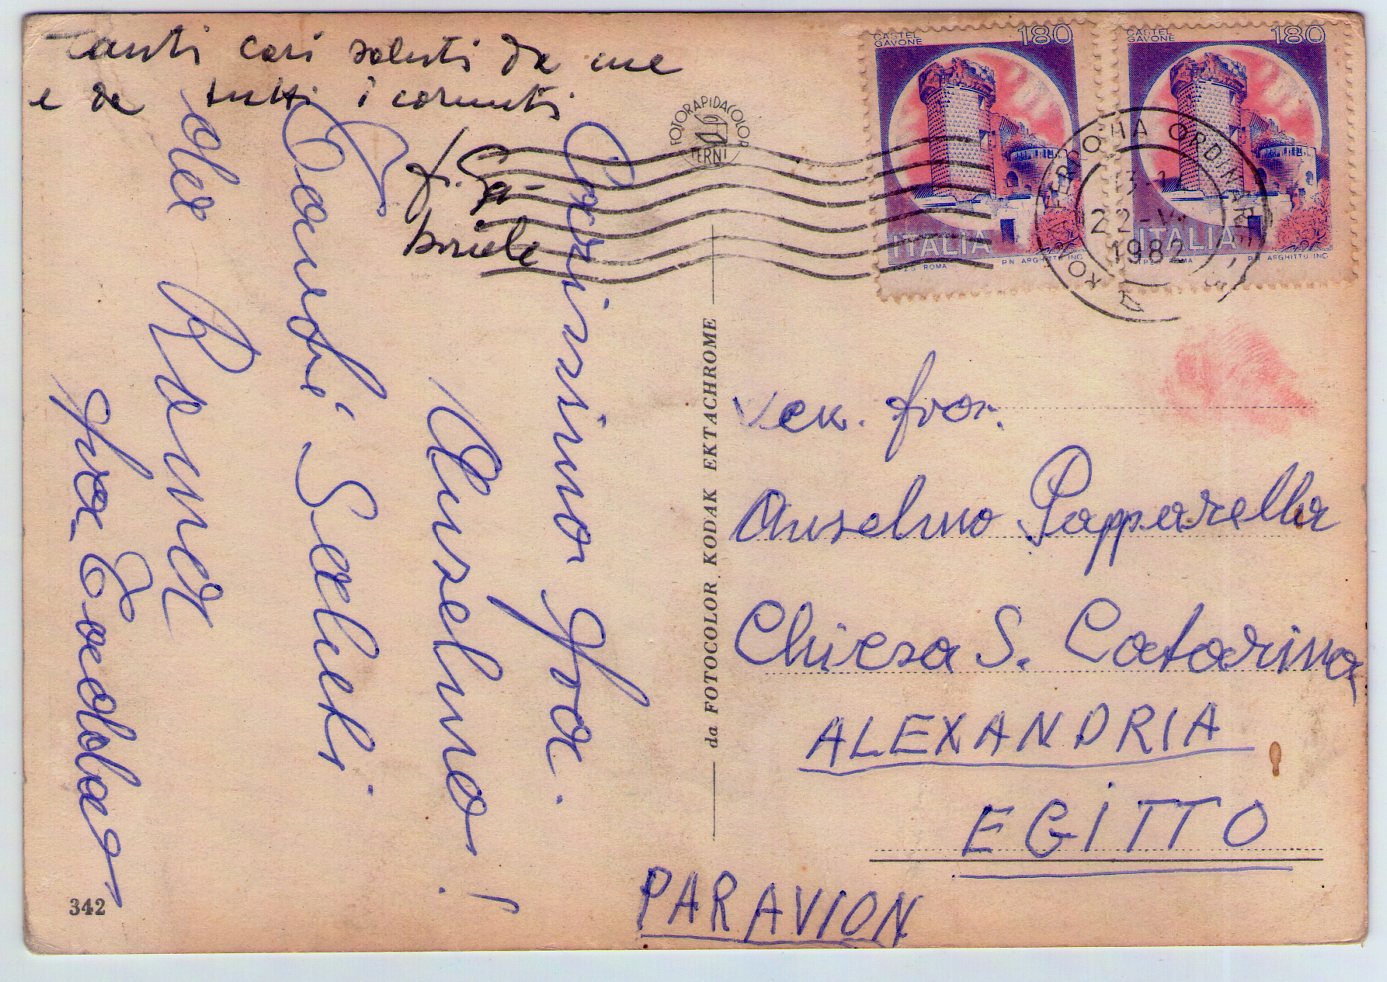 Tanti cari saluti da me
e da tutti i
f. Ga-
briele
Carissimo fra.
Anselmo!
Tanti Saluti
da Roma
fra
342
FOTORAPIDACOLOR
TERNI
da FOTOCOLOR KODAK EKTACHROME
CASTEL
GAVONE
180
ITALIA
I.P.S. ROMA
P.N. ARGHITTU INC.
CASTEL
GAVONE
180
ITALIA
I.P.S. ROMA
P.N. ARGHITTU INC.
ROMA FERROVIA ORDINARIE
22-VI
1982
ven. fra.
Anselmo Papparella
Chiesa S. Catarina
ALEXANDRIA
EGITTO
PAR AVION